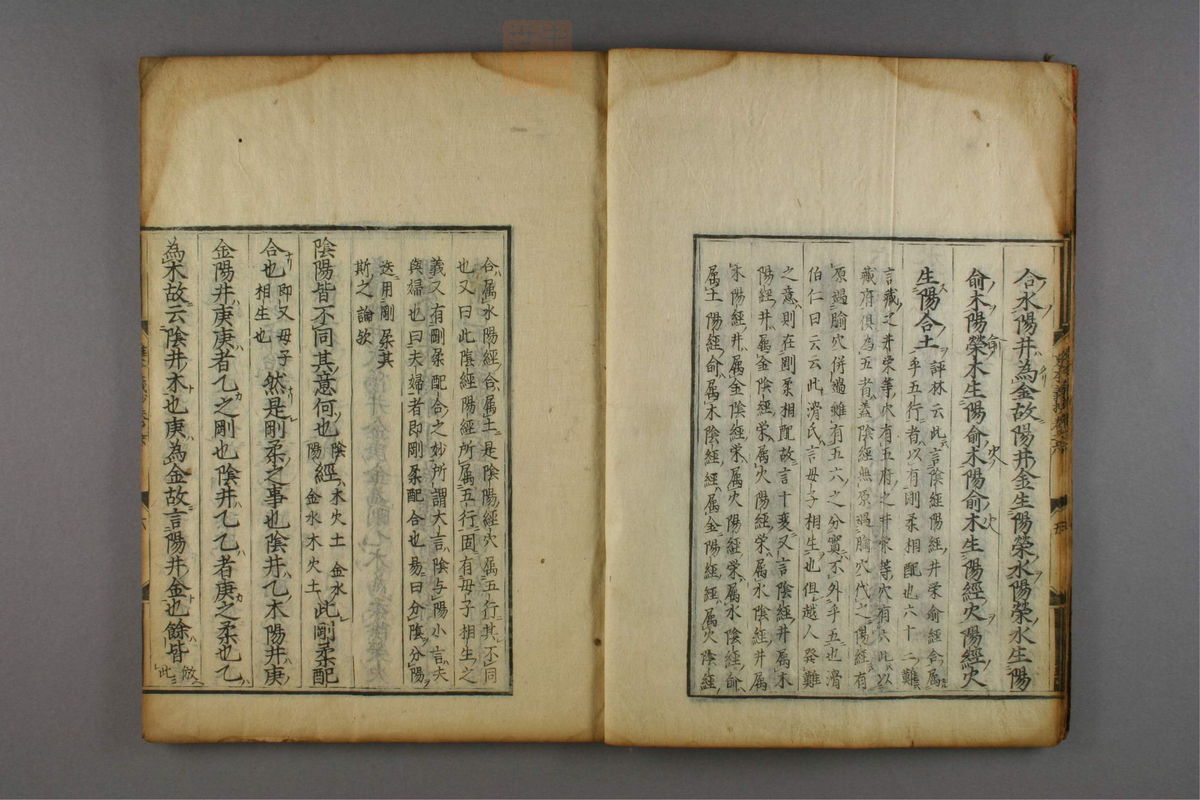 合水陽井為金故陽井金生陽滎水陽滎水生陽
俞木陽滎木生陽俞木陽俞木生陽經火陽經火
生陽合土 評林云此言陰經陽經井滎俞經合属
乎五行者以有剛柔相配也六十二難
言藏之井滎等穴有五府之井滎等穴有六此以
藏府俱為五者蓋陰經無原過腧穴代之陽經有
原過腧穴併過雖有五六之分實不外乎五也滑
伯仁曰云云此滑氏言母子相生也但越人發難
之意則在剛柔相配故言十変又言陰經井属木
陽經井属金陰經滎属火陽經滎属水陰經井属
木陽經井属金陰經滎属火陽經滎属水陰經俞
属土陽經俞属木陰經經属金陽經經属火陰經
合属水陽經合属土是陰陽經穴属五行其不同
也又曰此陰經陽經所属五行固有母子相生之
義又有剛柔配合之妙所謂大言陰与陽小言夫
與婦也曰夫婦者即剛柔配合也易曰分陰分陽
迭用剛柔其
斯之論欤
陰陽皆不同其意何也 陰陽經 木火土金水 金水木火土 此剛柔配
合也 即又母子相生也 然是剛柔之事也陰井乙木陽井庚
金陽井庚庚者乙之剛也陰井乙乙者庚之柔也乙
為木故云陰井木也庚為金故言陽井金也餘皆
倣此